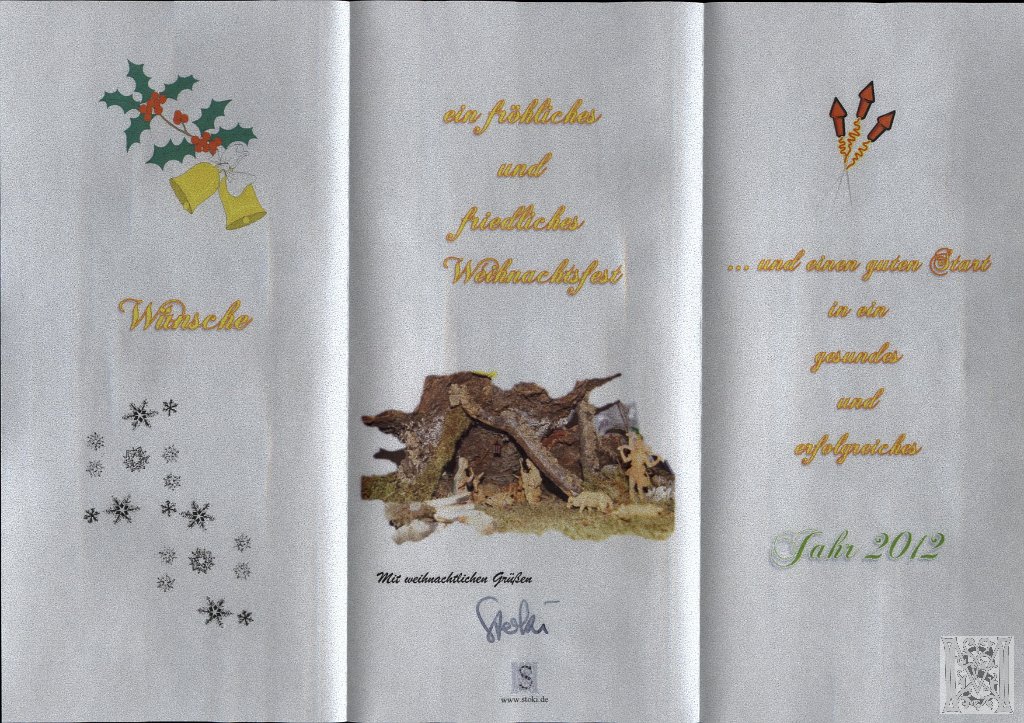 Wünsche
ein fröhliches
und
friedliches
Weihnachtsfest
Mit weihnachtlichen Grüßen
Stoki
S
www.stoki.de
... und einen guten Start
in ein
gesundes
und
erfolgreiches
Jahr 2012